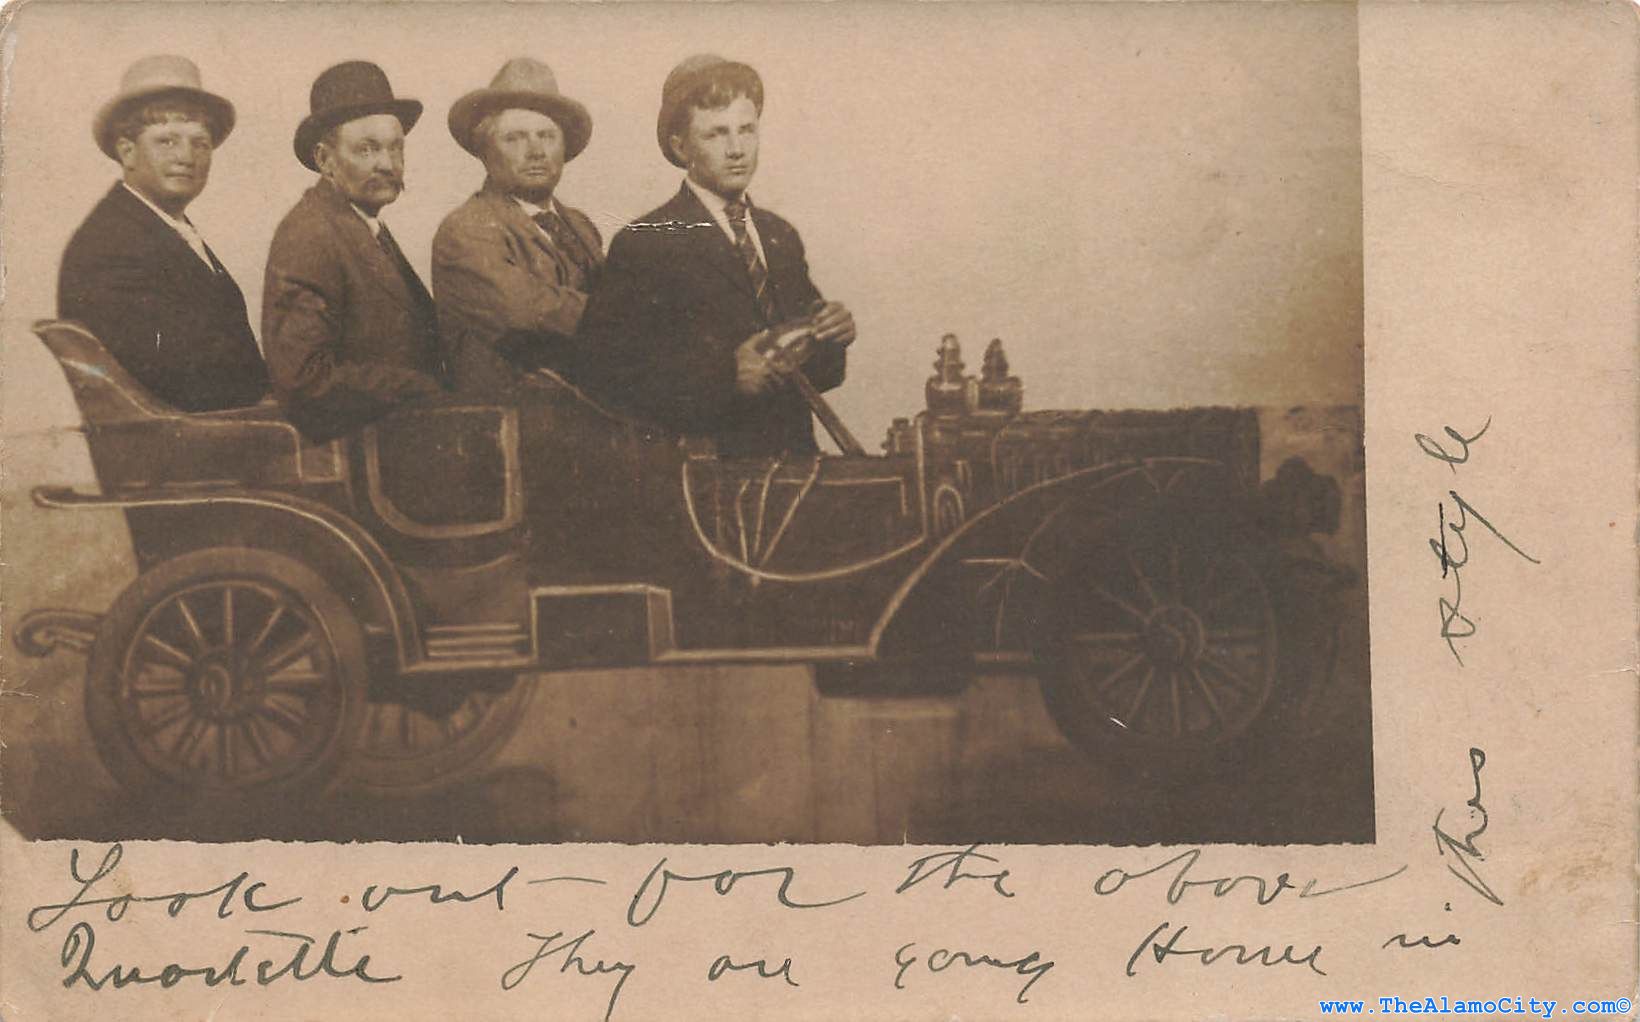 Look out for the above
Quartette They are going Home in
this style
www.TheAlamoCity.com©